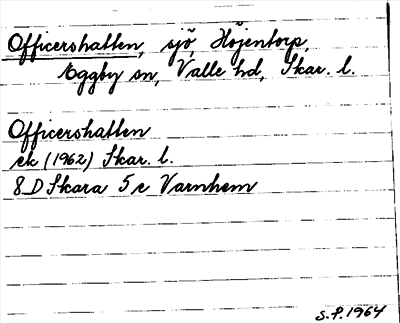 Officershatten, sjö, Höjentorp,
Eggby sn, Valle hd, Skar. l.
Officershatten
ek (1962) Skar. l.
8 D Skara 5 c Varnhem
S.P. 1964